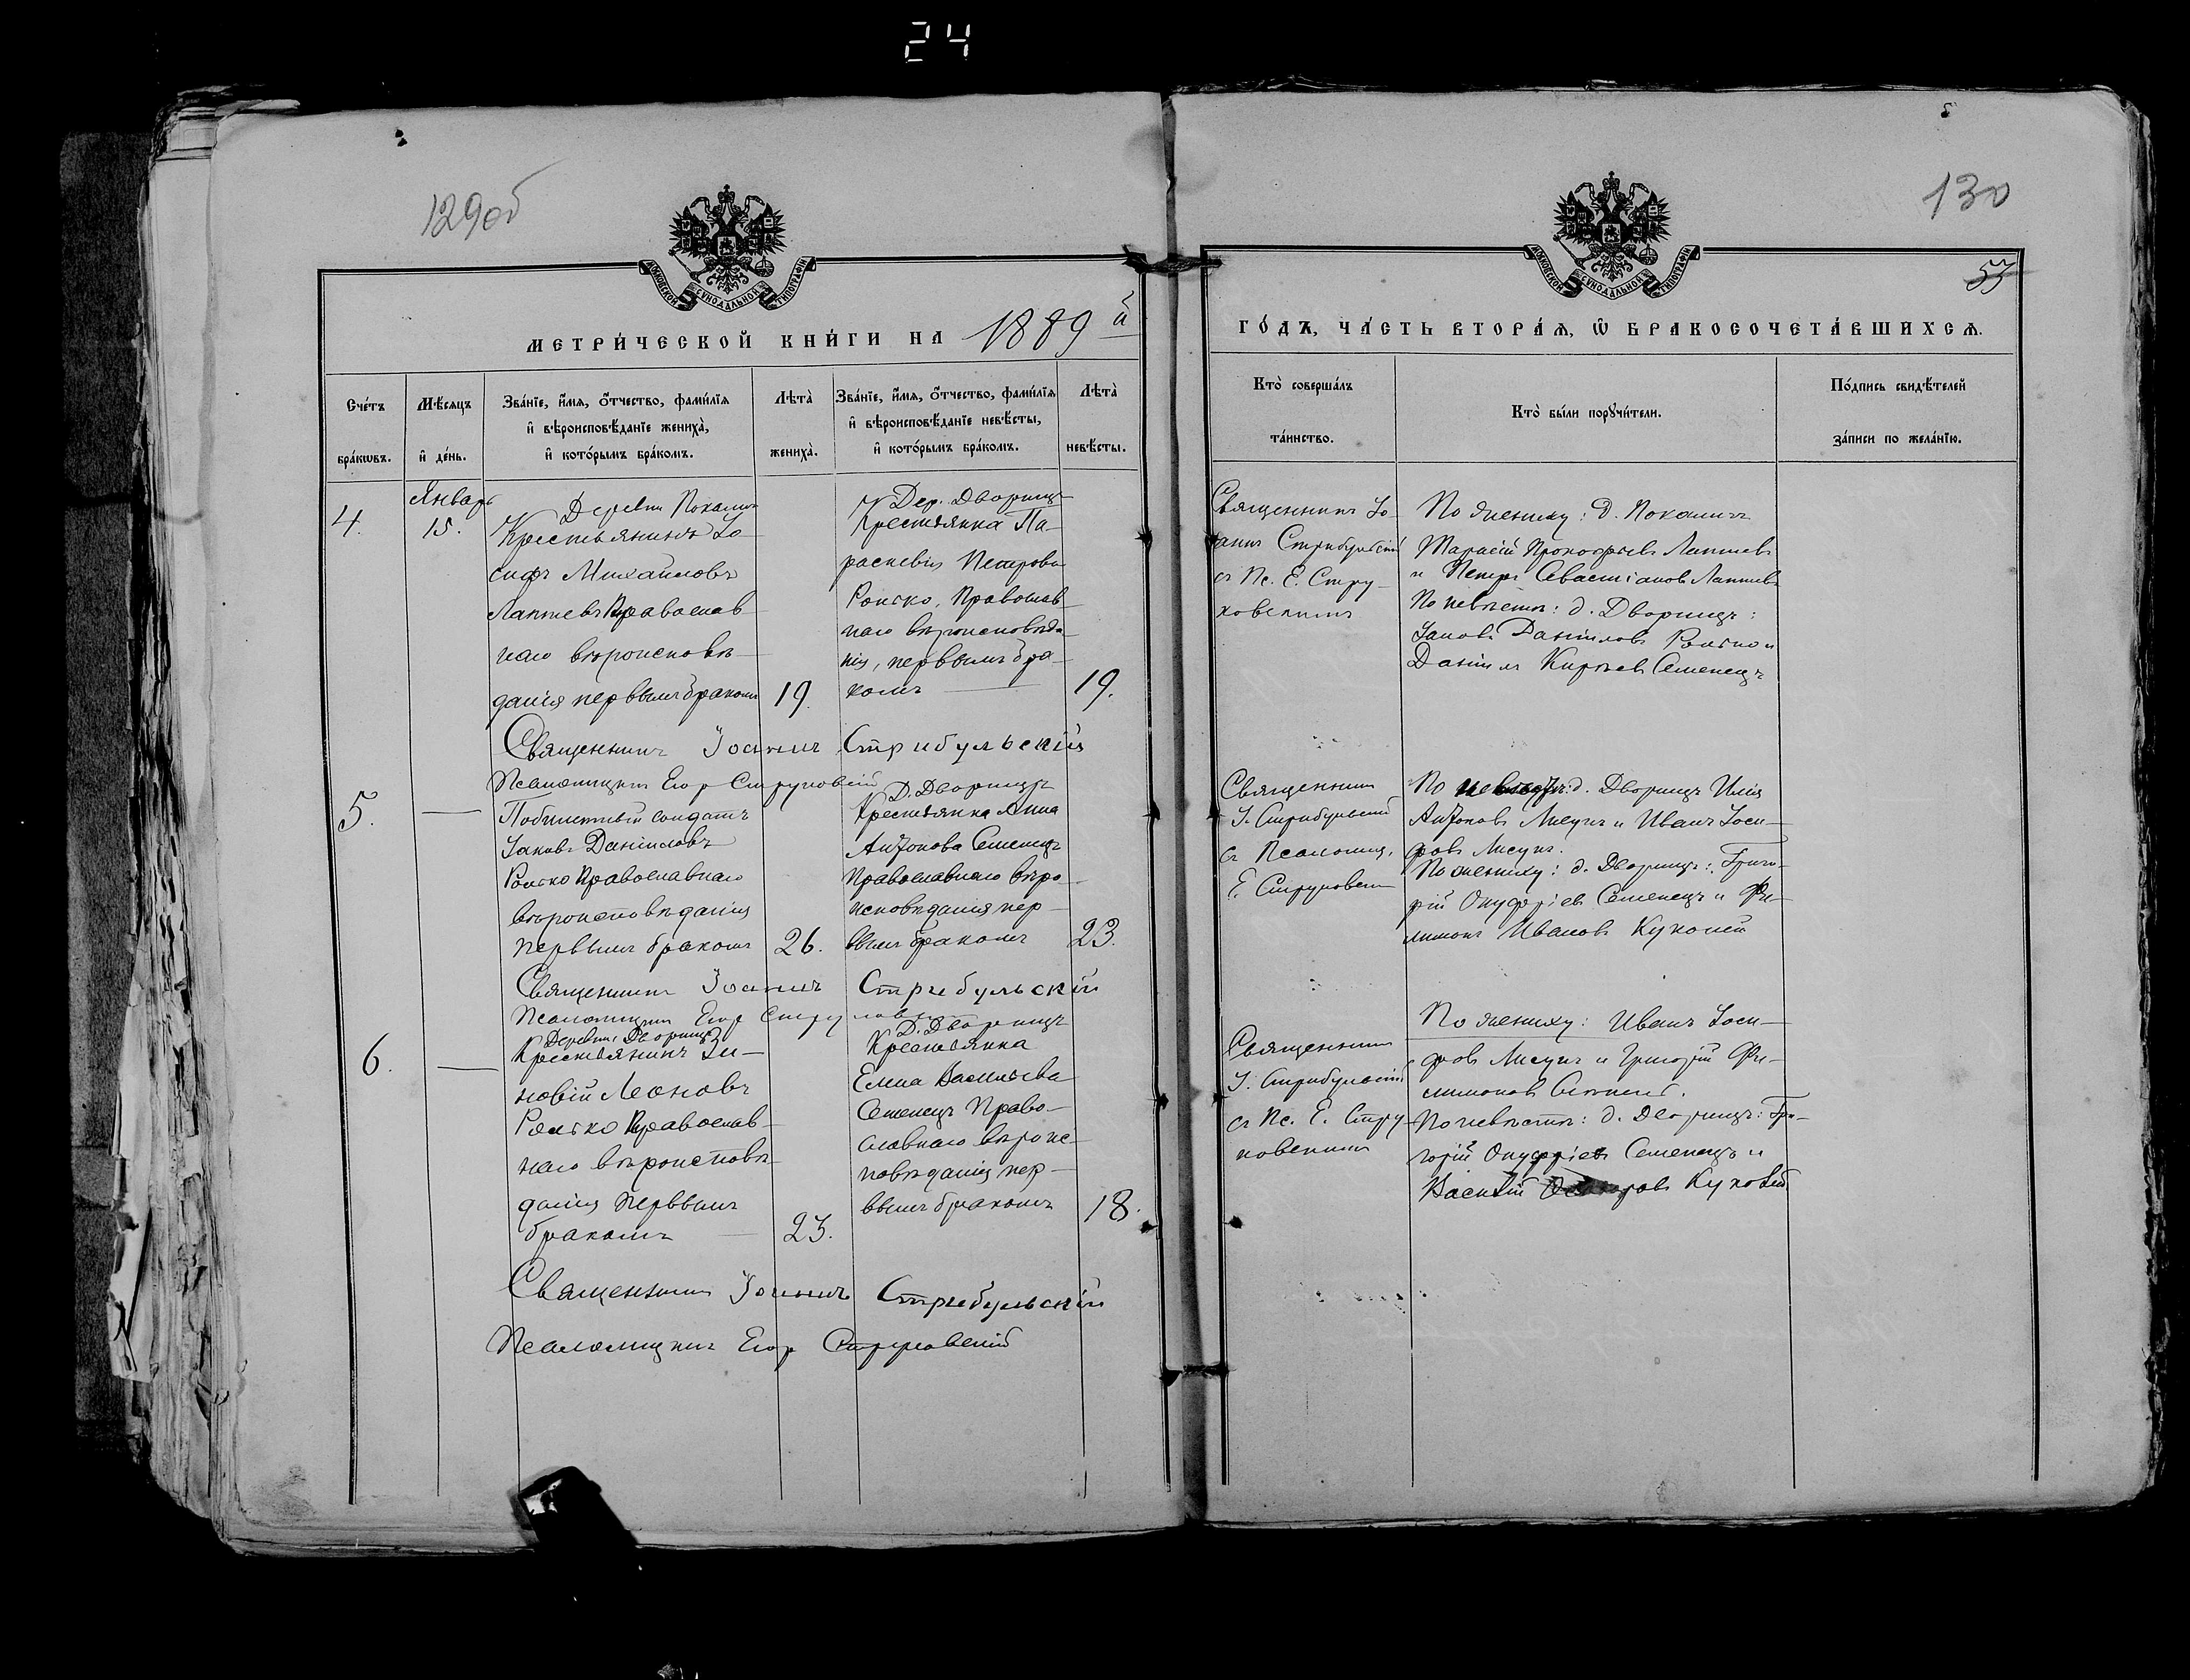 24
129об
130
55
МОСКОВСКОЙ СѴНОДАЛЬНОЙ ТИПОГРАФІИ
МОСКОВСКОЙ СѴНОДАЛЬНОЙ ТИПОГРАФІИ
МЕТРИ́ЧЕСКОЙ КНИ́ГИ НА 1889й
ГО́ДЪ, ЧА́СТЬ ВТОРА́Я, Ѽ БРАКОСОЧЕТА́ВШИХСЯ.
Сче́тъ
бра́кѡвъ.
Мѣ́сяцъ
и҆ де́нь.
Зва́нїе, и҆́мя, ѻ҆́тчество, фами́лїя
и҆ вѣроисповѣ́данїе жениха̀,
и҆ кото́рымъ бра́комъ.
Лѣта̀
жениха̀.
Зва́нїе, и҆́мя, ѻ҆́тчество, фами́лїя
и҆ вѣроисповѣ́данїе невѣ́сты,
и҆ кото́рымъ бра́комъ.
Лѣта̀
невѣ́сты.
Кто̀ соверша́лъ
та́инство.
Кто̀ бы́ли порꙋчи́тели.
По́дпись свидѣ́телей
за́писи по жела́нїю.
4.
Январь
15.
Деревни
Крестьянинъ Іо-
сифъ Михаиловъ
Лаптевъ Православ
наго вѣроисповѣ-
данія первымъ бракомъ
19.
Дер. Дворищъ
Крестьянка Па-
раскевія Петрова
Ройтко, Православ
наго вѣроисповѣда-
нія, первымъ бра-
комъ
19.
Священникъ Іо
аннъ Стрибульскій
съ Пс. Е. Стру-
ковскимъ
По жениху: д.
Прокофьевъ Лаптевъ
и Петръ Севастіановъ Лаптевъ
По невѣстѣ: д. Дворищъ:
Іаковъ Даніиловъ Ройтко и
Даніилъ Семенецъ
Священникъ Іоаннъ Стрибульскій
Псаломщикъ Егор Струковскій
5.
Побилетный солдатъ
Іаковъ Даніиловъ
Ройтко Православнаго
вѣроисповѣданія
первымъ бракомъ
26.
Д. Дворищъ
Крестьянка Анна
Семенецъ
Православнаго вѣро-
исповѣданія пер-
вымъ бракомъ
23.
Священникъ
І. Стрибульскій
съ Псаломщ.
Е. Струковским
По невѣстѣ: д. Дворищъ Илія
Лисунъ и Иванъ Іоси-
фовъ Лисунъ.
По жениху: д. Дворищъ: Григо-
рій Онуфріевъ Семенецъ и Фи-
лимонъ Ивановъ
Священникъ Іоаннъ Стрибульскій
Псаломщикъ Егор Струковскій
6.
Деревни Дворищъ
Крестьянинъ Зи-
новій Леоновъ
Ройтко Православ-
наго вѣроисповѣ-
данія первымъ
бракомъ
23.
Д. Дворищъ
Крестьянка
Елена Васильева
Семенецъ Право-
славнаго вѣроис-
повѣданія пер-
вымъ бракомъ
18.
Священникъ
І. Стрибульскій
съ Пс. Е. Стру-
ковскимъ
По жениху: Иванъ Іоси-
фовъ Лисунъ и Григорій Фи-
лимоновъ
По невѣстѣ: д. Дворищъ: Гри-
горій Онуфріевъ Семенецъ и
Василій
Священникъ Іоаннъ Стрибульскій
Псаломщикъ Егор Струковскій